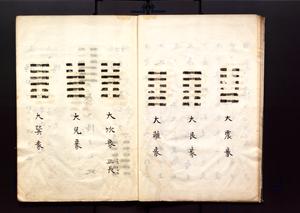 大震象
大艮象
大離象
大坎象
大兌象
大巽象